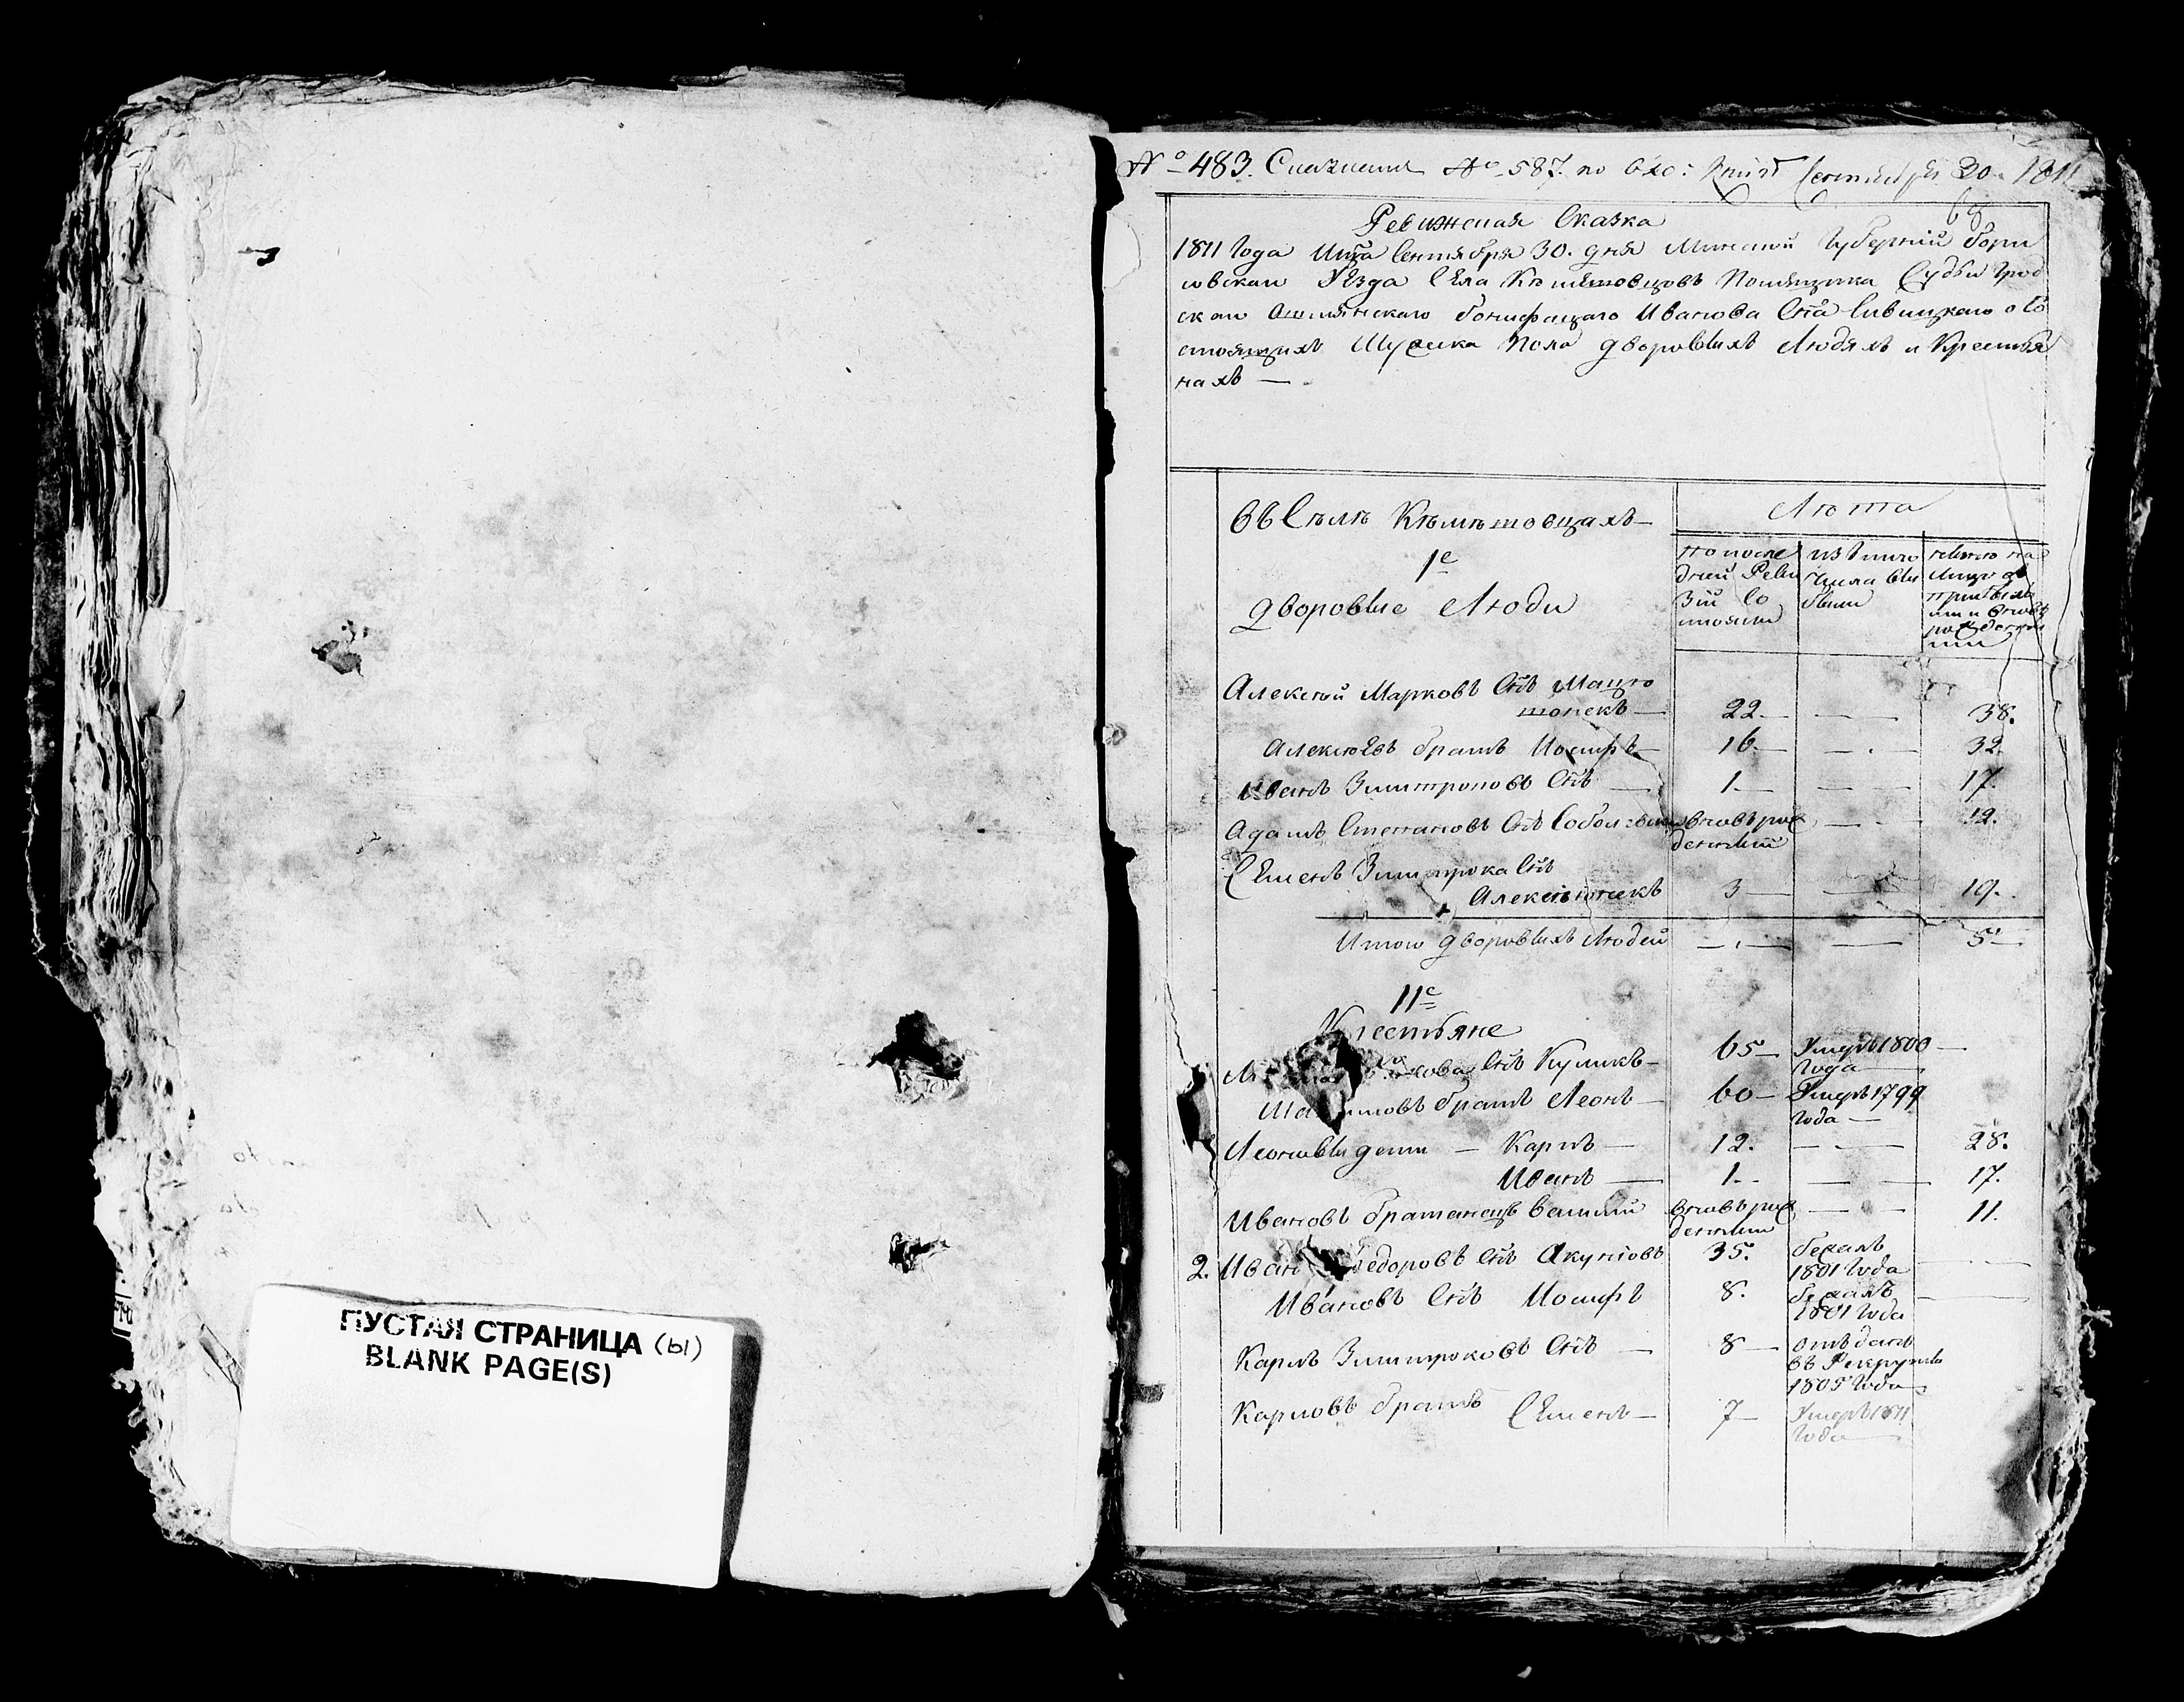 ПУСТАЯ СТРАНИЦА (ы)
BLANK PAGE(S)
№ 483. № 587. по вхо: Сентября 30 1811
68
Ревижская Сказка
1811 Года Сентября 30. дня Минской Губернии Бори
совскаго Уезда Села Помещика Судьи Грод
скаго Ошмянскаго Бонифацаго Иванова Сна о Со
стоящихъ Мужска Пола дворовыхъ Людяхъ и Крестья
нахъ —
въ Селе
1е
дворовые Люди
Лета
по после
дней Реви
зіи Со
стояли
изъ того
числа вы
были
ныне на
лицо съ
прибыл
ми и вновь
рожденны
ми
Алексей Марковъ Снъ Мацю
шонекъ — 22. — — 38.
Алексеевъ братъ Иосифъ — 16. — — 32.
Иванъ Змитроковъ Снъ — 1. — — 17.
Адамъ Степановъ Снъ вновь рож
денный — 12.
Семенъ Змитрока Снъ
Алексеюнекъ 3 — — 19.
Итого дворовыхъ Людей — — 5 —
11е
Крестьяне
Снъ Куликъ — 65 — Умеръ 1800
Года —
братъ Леонъ — 60 — Умеръ 1799
Года —
Леоновы дети — Карпъ — 12. — 28.
Иванъ — 1. — — 17.
Ивановъ братанецъ Василий вновь рож
денный — 11.
2. Иванъ Федоровъ Снъ Якуповъ 35. бежалъ
1801 Года
Ивановъ Снъ Иосифъ 8. бежалъ
1801 Года
Карпъ Змитроковъ Снъ — 8 — отъданъ
въ Рекруты
1805 Года
Карповъ братъ Семенъ — 7 — Умеръ 1811
Года —